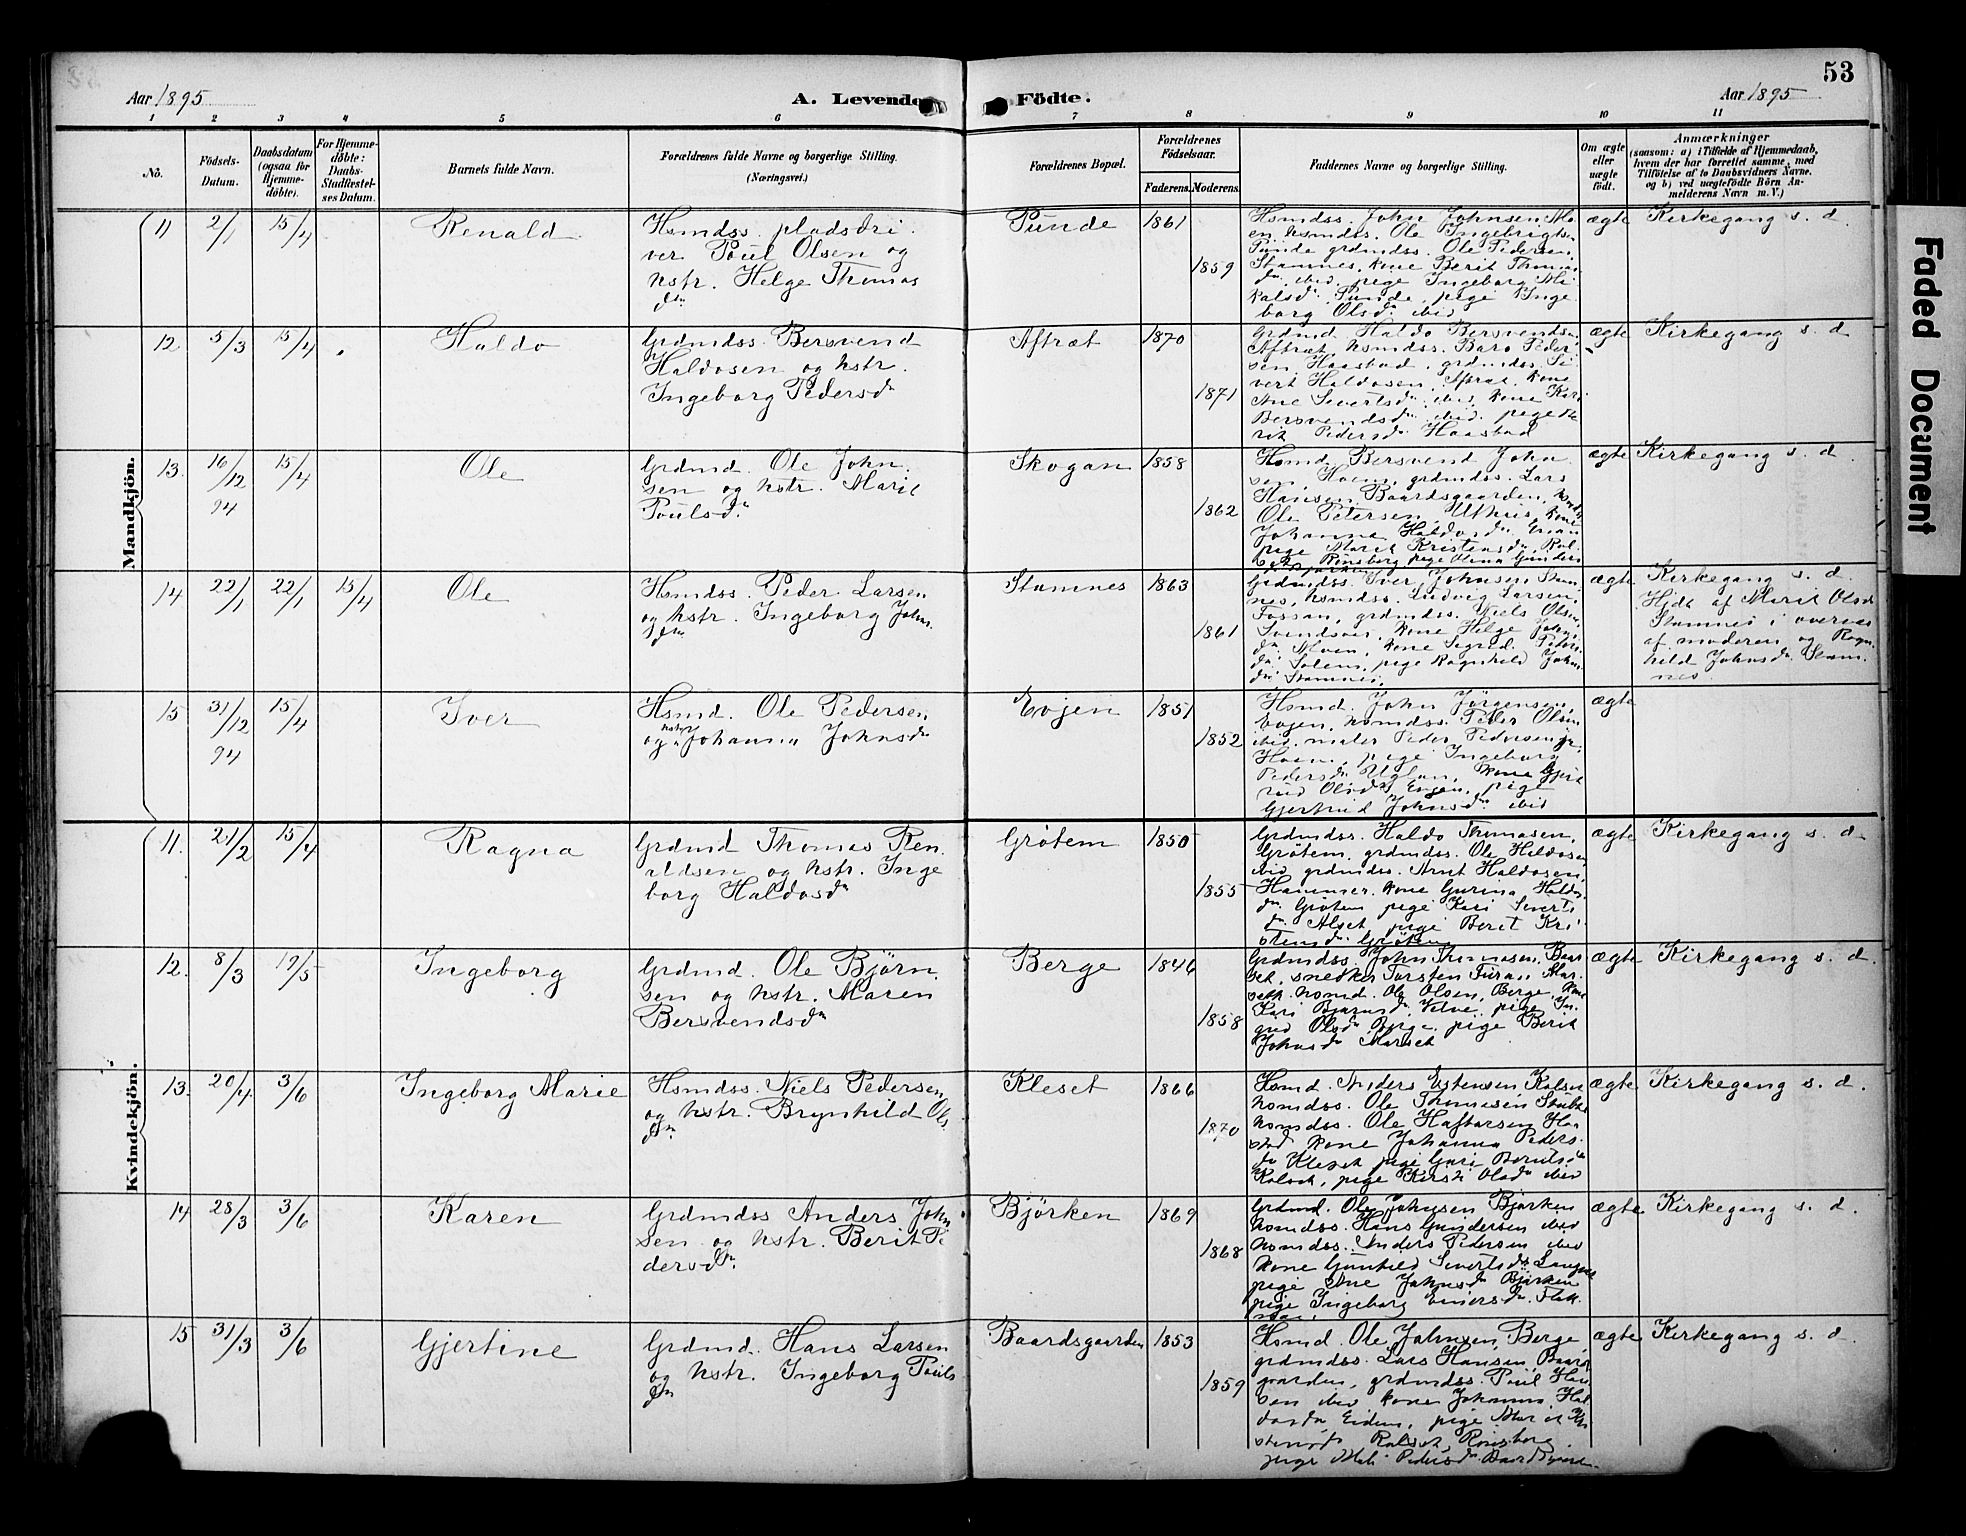 53
Aar 1895
A. Levende
Födte.
Aar 1895
1 2 3 4 5 6 7 8 9 10 11
No.
Födsels-
Datum.
Daabsdatum
(ogsaa for
Hjemme-
döbte).
For Hjemme-
döbte:
Daabs-
Stadfæstel-
ses Datum.
Barnets fulde Navn.
Forældrenes fulde Navne og borgerlige Stilling.
(Næringsvei.)
Forældrenes Bopæl.
Forældrenes
Födselsaar.
Faderens.
Moderens.
Faddernes Navne og borgerlige Stilling.
Om ægte
eller
uægte
födt.
Anmærkninger
(saasom: a) i Tilfælde af Hjemmedaab,
hvem der har forrettet samme, med
Tilföielse af to Daabsvidners Navne,
og b) ved uægtefödte Börn An-
melderens Navn m. V.)
Mandkjön.
11 2/1 15/4
Renald
Hsmdss. pladsdri
ver Poul Olsen og
hstr. Helge Thomas
dtr
Punde
1861
1859
Hsmdss. John Johnsen Mo
en hsmdss. Ole Ingebrigtsen
Punde grdmdss. Ole Pedersen
Stamnes, kone Berit Thomas
dr ibid, pige Ingeborg Mi
kalsdr Punde, pige Inge
borg Olsdr ibid
ægte
Kirkegang s. d
12 5/3 15/4
Haldo
Grdmdss. Bersvend
Haldosen og hstr.
Ingeborg Pedersdr
Aftræt
1870
1871
Grdmd. Haldo Bersvendsen
Aftræt, hsmdss. Baro Peder
sen Haasbad, grdmdss. Si
vert Haldosen, Aftræt, kone
Ane Sivertsdr ibid, kone Kari
Bersvendsdr ibid. pige Be
rit Pedersdr Haasbad
ægte
Kirkegang s. d
13. 16/12 94 15/4
Ole
Grdmd. Ole John
sen og hstr. Marit
Poulsdr
Skogan
1858
1862
Hsmd. Bersvend John
sen, Hoem, grdmdss. Lars
Hansen Baardsgaarden,
Ole Petersen, Uthus, kone
Johanna Haldosdr
pige Marit Kristensdr Ral
Rønsberg pige Olina Gunders
ægte
Kirkegang s. d
14 22/1 22/1 15/4
Ole
Hsmdss. Peder Larsen
og hstr. Ingeborg Johns
dtr
Stamnes
1863
1861
Grdmdss. Iver Johnsen Stam
nes, hsmdss. Ludvig Larsen,
Fossan, grdmdss. Niels Olsen
Svendsøien, kone Helge Johns
dr Moen, kone Sigrid Peders
dr Solem, pige Ragnhild Johns
dr Stamnes.
ægte
Kirkegang s. d.
Hjdt af Marit Olsdr
Stamnes i overvær
af moderen og Ragn
hild Johnsdr Stam
nes.
15 31/12 94 15/4
Iver
Hsmd. Ole Pedersen
og hstr. Johanna Johnsdr
Evjen
1851
1852
Hsmd. John Jørgensen,
Evjen, hsmdss. Peder Olsen
ibid. maler Peder Pedersen jr.
Hoem, pige Ingeborg
Pedersdr Uglan, kone Gjert
rud Olsdr Evjen, pige
Gjertrud Johnsdr ibid
ægte
Kvindekjön.
11. 21/2 15/4
Ragna
Grdmd Thomas Ren
aldsen og hstr. Inge
borg Haldosdr
Grøtem
1850
1855
Grdmdss. Haldo Thomasen,
Grøtem, grdmdss. Ole Haldosen
ibid grdmdss. Arnt Haldosen,
Hammer, kone Gurina Haldos
dr Grøtem pige Kari Siverts
dr Alset, pige Berit Kri
stensdr Grøtem
ægte
Kirkegang s. d.
12. 8/3 19/5
Ingeborg
Grdmd. Ole Bjørn
sen og hstr. Maren
Bersvendsdr
Berge
1846
1858
Grdmdss. John Thomasen, Baar
set, snedker Torsten Furan Mar
seth, hsmd. Ole Olsen, Berge, kone
Kari Bjørnsdr, Velve, pige In
grid Olsdr Berge, pige Berit
Johnsdr Marseth
ægte
Kirkegang s. d.
13. 20/4 3/6
Ingeborg Marie
Hsmdss. Niels Pedersen
og hstr. Brynhild Ols
dtr
Kleset
1866
1870
Hsmd. Anders Estensen Kalset
hsmdss. Ole Thomasen Stubbe
hsmdss. Ole Haftorsen Haa
stad kone Johanna Peders
dr Kleset pige Guri Berntsdr
Kalset, pige Kirsti Olsdr ibid
ægte
Kirkegang s. d.
14 28/3 3/6
Karen
Grdmdss Anders John
sen og hstr. Berit Pe
dersdr
Bjørken
1869
1868
Grdmd. Ole Johnsen Bjørken
hsmdss. Hans Gundersen ibid
hsmdss. Anders Pedersen ibid
kone Gunhild Sivertsdr
pige Ane Johnsdr Bjørken
pige Ingeborg Einersdr
ægte
Kirkegang s. d.
15 31/3 3/6
Gjertine
Grdmd. Hans Larsen
og hstr. Ingeborg Pouls
dtr
Baardsgaarden
1853
1859
Hsmd. Ole Johnsen, Berge
grdmdss. Lars Hansen, Baards
gaarden, grdmdss. Poul Han
sen ibid, kone Johanna Hal
dosdr Eidem, pige Marit Kri
stensdr Ralset, Rønsberg
pige Mali Pedersdr
ægte
Kirkegang s. d.
Faded Document